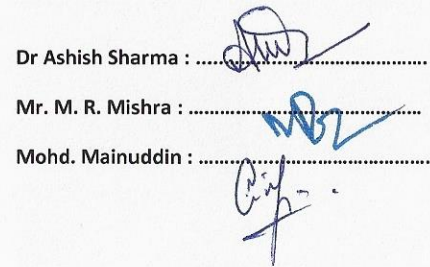 Dr Ashish Sharma : ........................................
Mr. M. R. Mishra : ........................................
Mohd. Mainuddin : ........................................